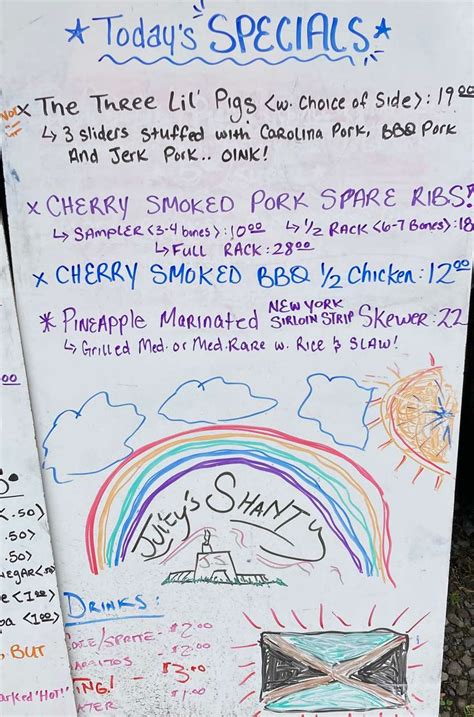 *Today's SPECIALS*
x The Three Lil' Pigs <w. Choice of Side>: 19.00
↳ 3 sliders stuffed with Carolina Pork, BBQ Pork
And Jerk Pork.. OINK!
x CHERRY SMOKED PORK SPARE RIBS!
↳ SAMPLER <3-4 bones>: 10.00 ↳ 1/2 RACK <6-7 Bones>: 18
↳ FULL RACK: 28.00
x CHERRY SMOKED BBQ 1/2 Chicken: 12.00
* Pineapple Marinated NEW YORK SIRLOIN STRIP Skewer: 22
↳ Grilled Med. or Med. Rare w. Rice & SLAW!
.00
<.50>
.50>
.50>
<1.00>
<1.00>
BUT
"HOT!"
SHANTY
JS
DRINKS:
/SPRITE - $2.00
- $2.00
TING! - $3.00
- $1